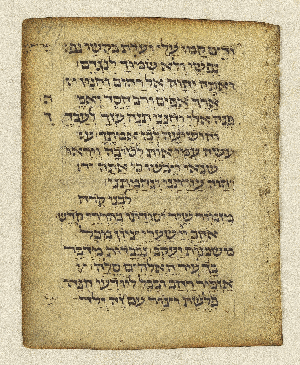 זדים קמו עלי ועדת בקשו
נפשי ולא שמוך לנגדם
ואתה אל רחום וחנון
ארך אפים ורב חסד
פנה אלי וחנני תנה עזך לעבדך
לבן אמתך
עשה עמי אות לטובה ויראו
שנאי ויבשו כי אתה
עזרתני ונחמתני
לבני קרח
מזמור שיר יסודתו בהררי קדש
אהב יי שערי ציון מכל
משכנות יעקב נכבדות מדבר
בך עיר האלהים סלה
אזכיר רהב ובבל לידעי הנה
פלשת וצור עם זה ילד